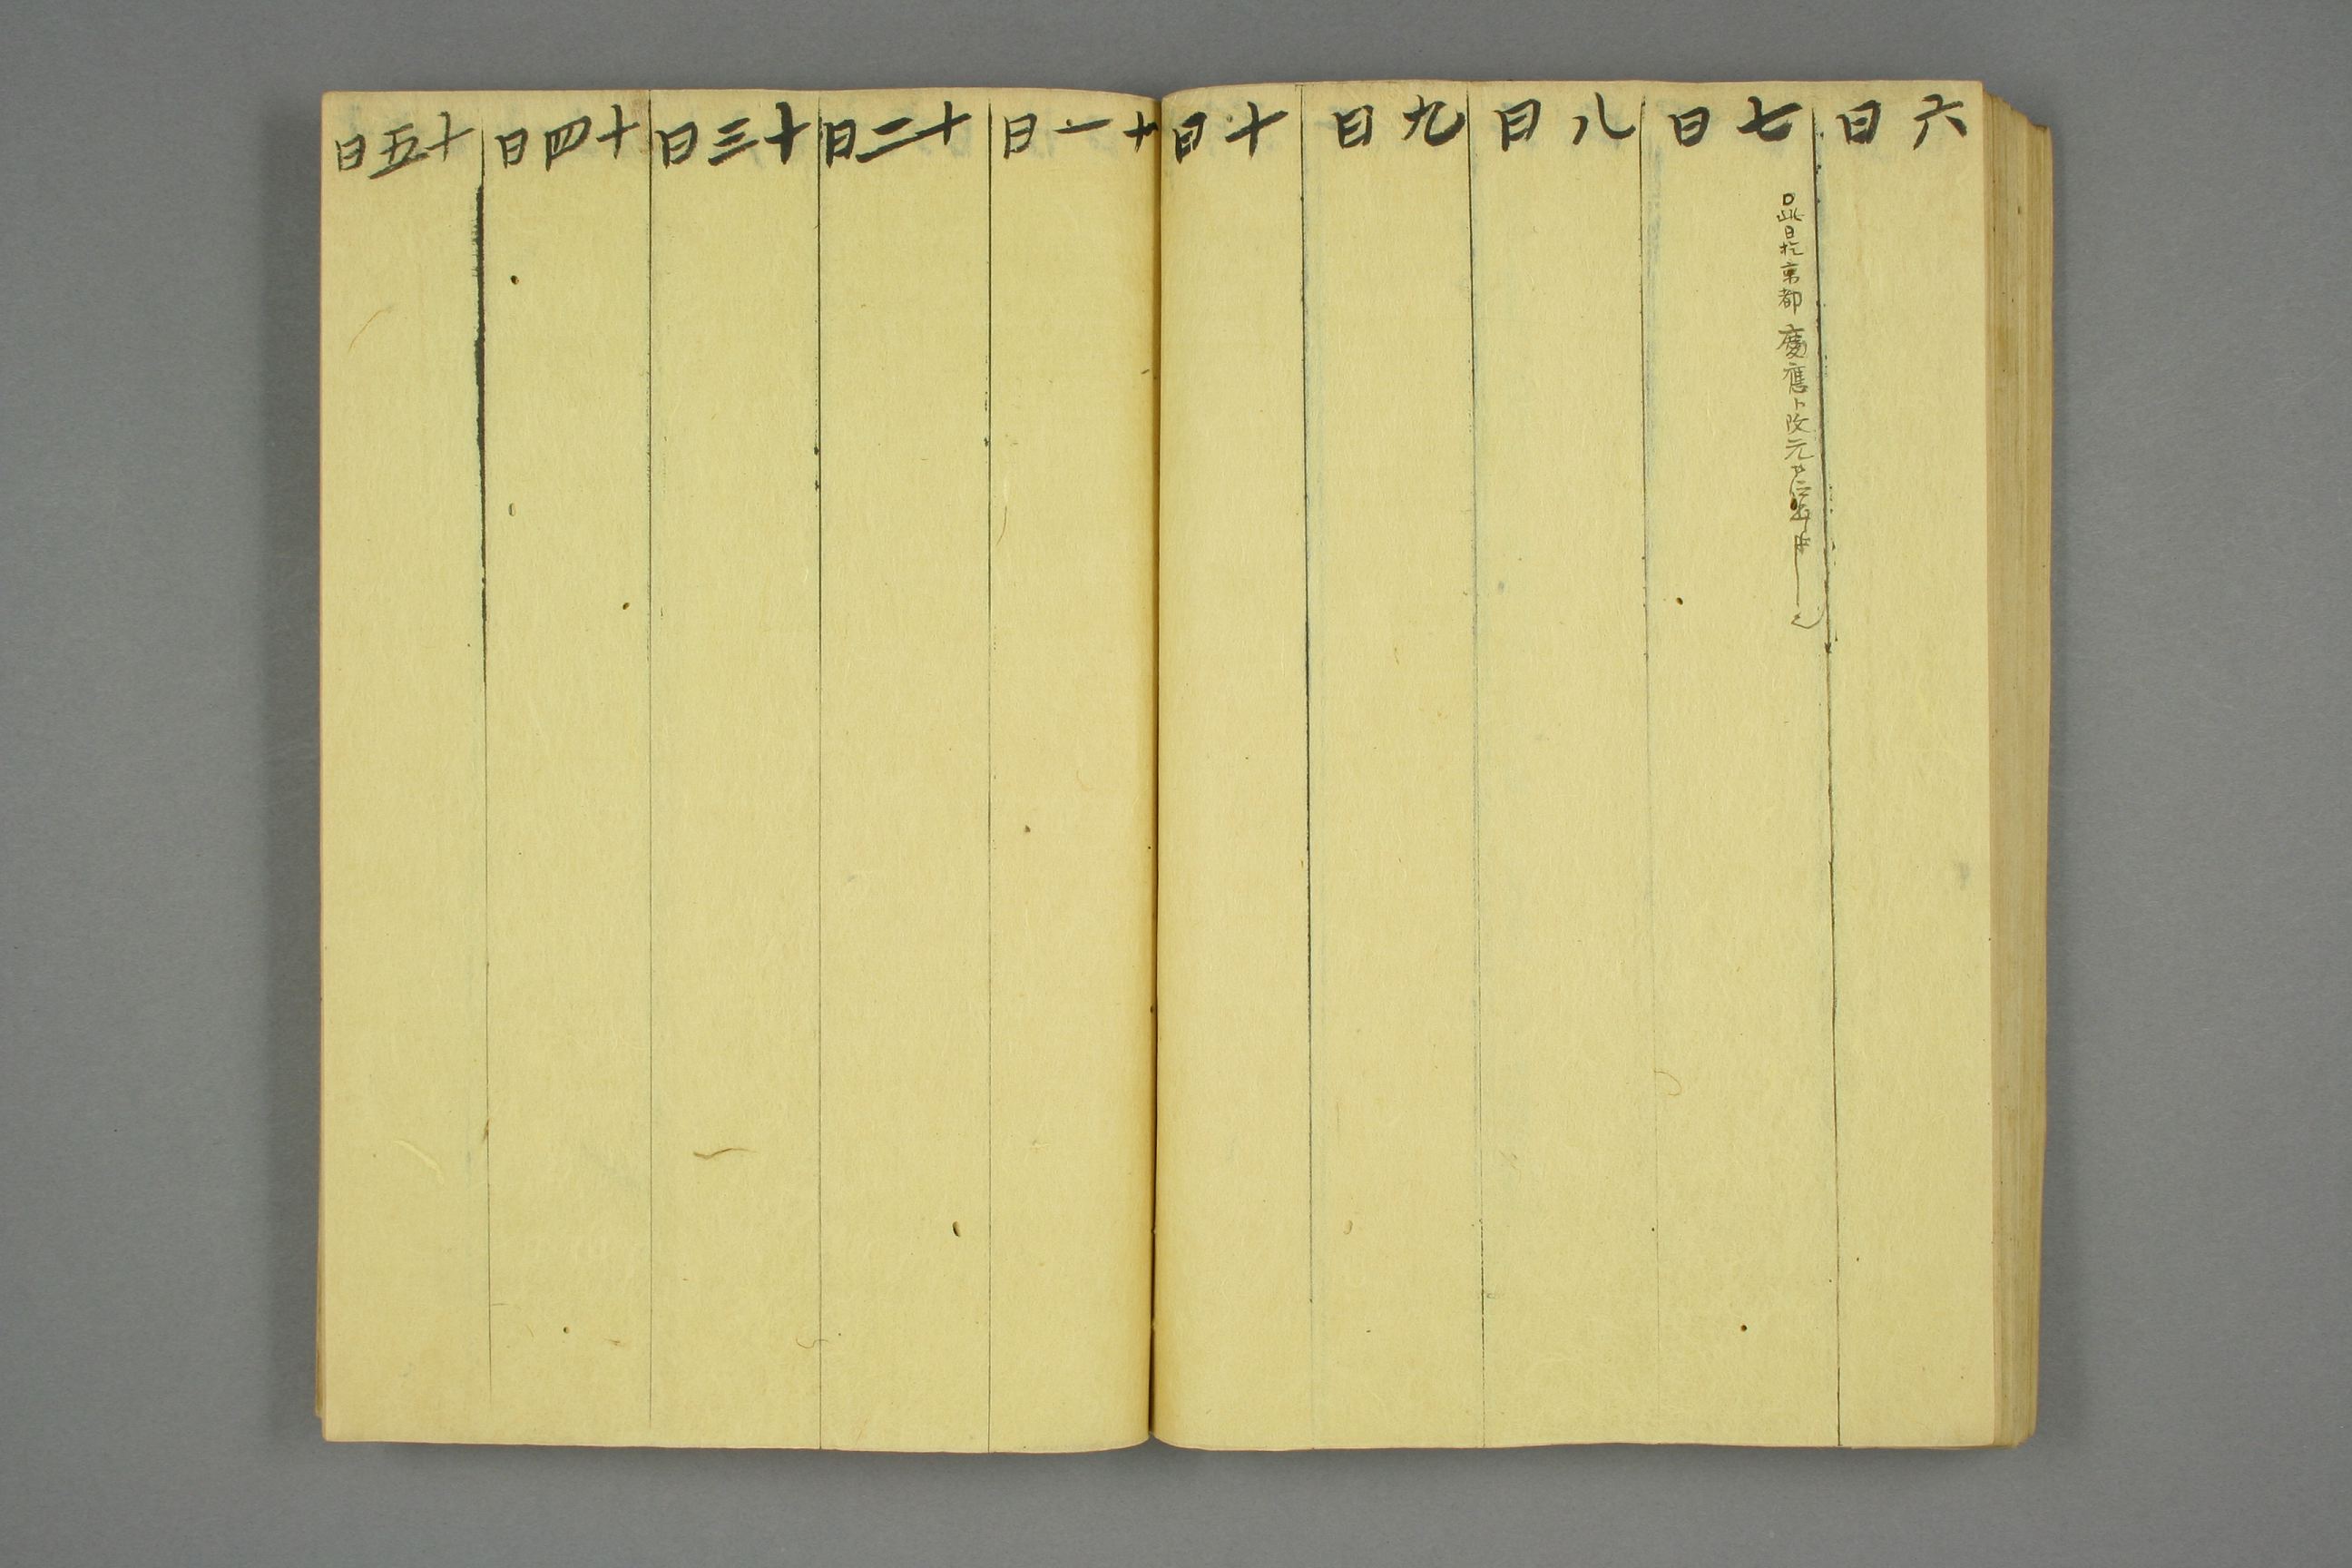 六日
七日
〇此日於京都慶應ト改元
八日
九日
十日
十一日
十二日
十三日
十四日
十五日